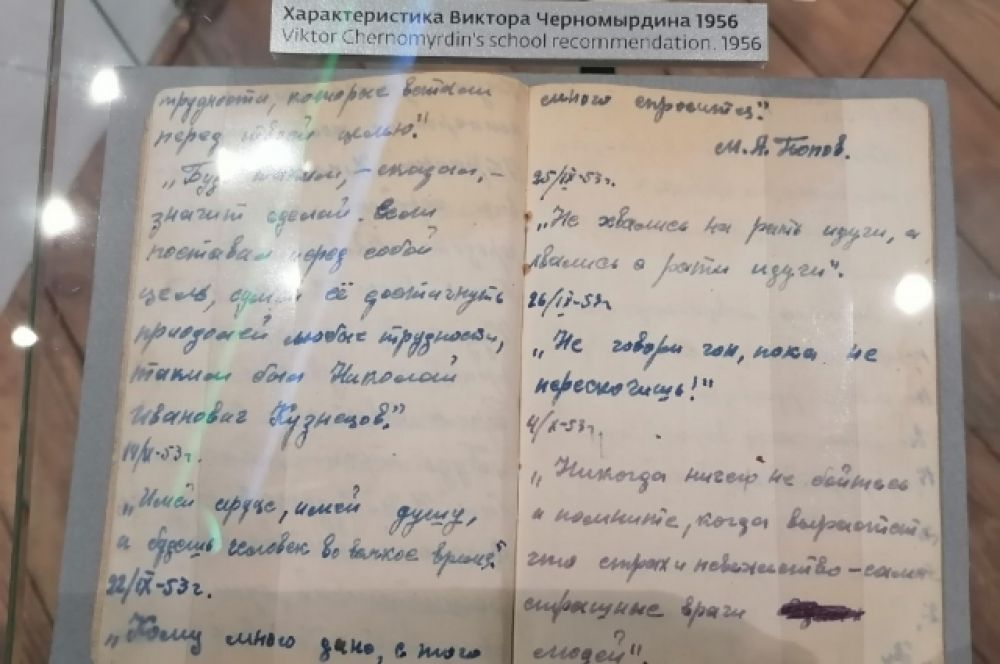 Характеристика Виктора Черномырдина 1956
Viktor Chernomyrdin's school recommendation. 1956
трудности, которые встали
перед твоей целью."
„Будь таким, – сказал, –
значит сделай. Если
поставил перед собой
цель, сумей её достигнуть
преодолей любые трудности,
таким был Николай
Иванович Кузнецов."
14/IX-53г.
„Имей сердце, имей душу,
и будешь человек во всякое время."
22/IX-53г.
„Кому много дано, с того
много спросится."
М.А. Попов.
25/IX-53г.
„Не хвались на рать идучи, а
хвались с рати идучи".
26/IX-53г
„Не говори гоп, пока не
перескочишь!"
4/X-53г.
„Никогда ничего не бойтесь
и помните, когда вырастете,
что страх и невежество – самые
страшные враги
людей".